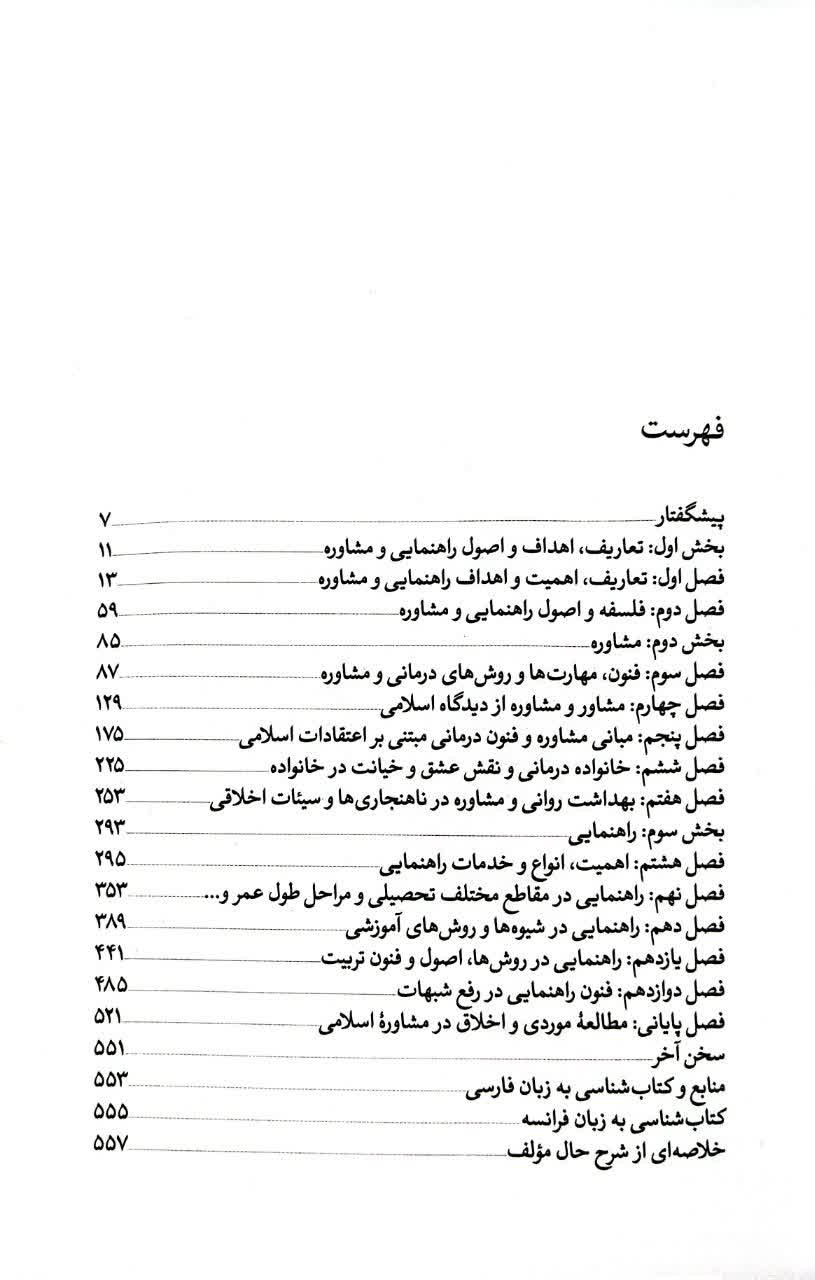 فهرست
پیشگفتار ۷
بخش اول: تعاریف، اهداف و اصول راهنمایی و مشاوره ۱۱
فصل اول: تعاریف، اهمیت و اهداف راهنمایی و مشاوره ۱۳
فصل دوم: فلسفه و اصول راهنمایی و مشاوره ۵۹
بخش دوم: مشاوره ۸۵
فصل سوم: فنون، مهارت‌ها و روش‌های درمانی و مشاوره ۸۷
فصل چهارم: مشاور و مشاوره از دیدگاه اسلامی ۱۲۹
فصل پنجم: مبانی مشاوره و فنون درمانی مبتنی بر اعتقادات اسلامی ۱۷۵
فصل ششم: خانواده درمانی و نقش عشق و خیانت در خانواده ۲۲۵
فصل هفتم: بهداشت روانی و مشاوره در ناهنجاری‌ها و سیئات اخلاقی ۲۵۳
بخش سوم: راهنمایی ۲۹۳
فصل هشتم: اهمیت، انواع و خدمات راهنمایی ۲۹۵
فصل نهم: راهنمایی در مقاطع مختلف تحصیلی و مراحل طول عمر و... ۳۵۳
فصل دهم: راهنمایی در شیوه‌ها و روش‌های آموزشی ۳۸۹
فصل یازدهم: راهنمایی در روش‌ها، اصول و فنون تربیت ۴۴۱
فصل دوازدهم: فنون راهنمایی در رفع شبهات ۴۸۵
فصل پایانی: مطالعهٔ موردی و اخلاق در مشاورهٔ اسلامی ۵۲۱
سخن آخر ۵۵۱
منابع و کتاب‌شناسی به زبان فارسی ۵۵۳
کتاب‌شناسی به زبان فرانسه ۵۵۵
خلاصه‌ای از شرح حال مؤلف ۵۵۷